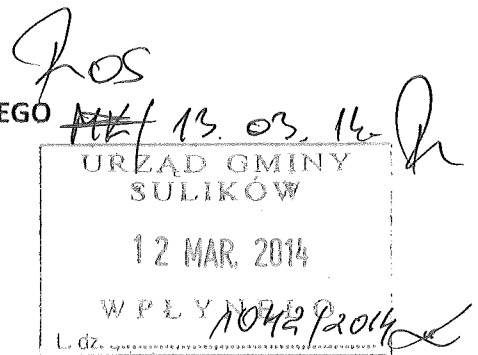 ROS
EGO MK/ 13. 03. 14.
URZĄD GMINY
SULIKÓW
12 MAR. 2014
WPŁYNĘŁO
L. dz. 1042/2014